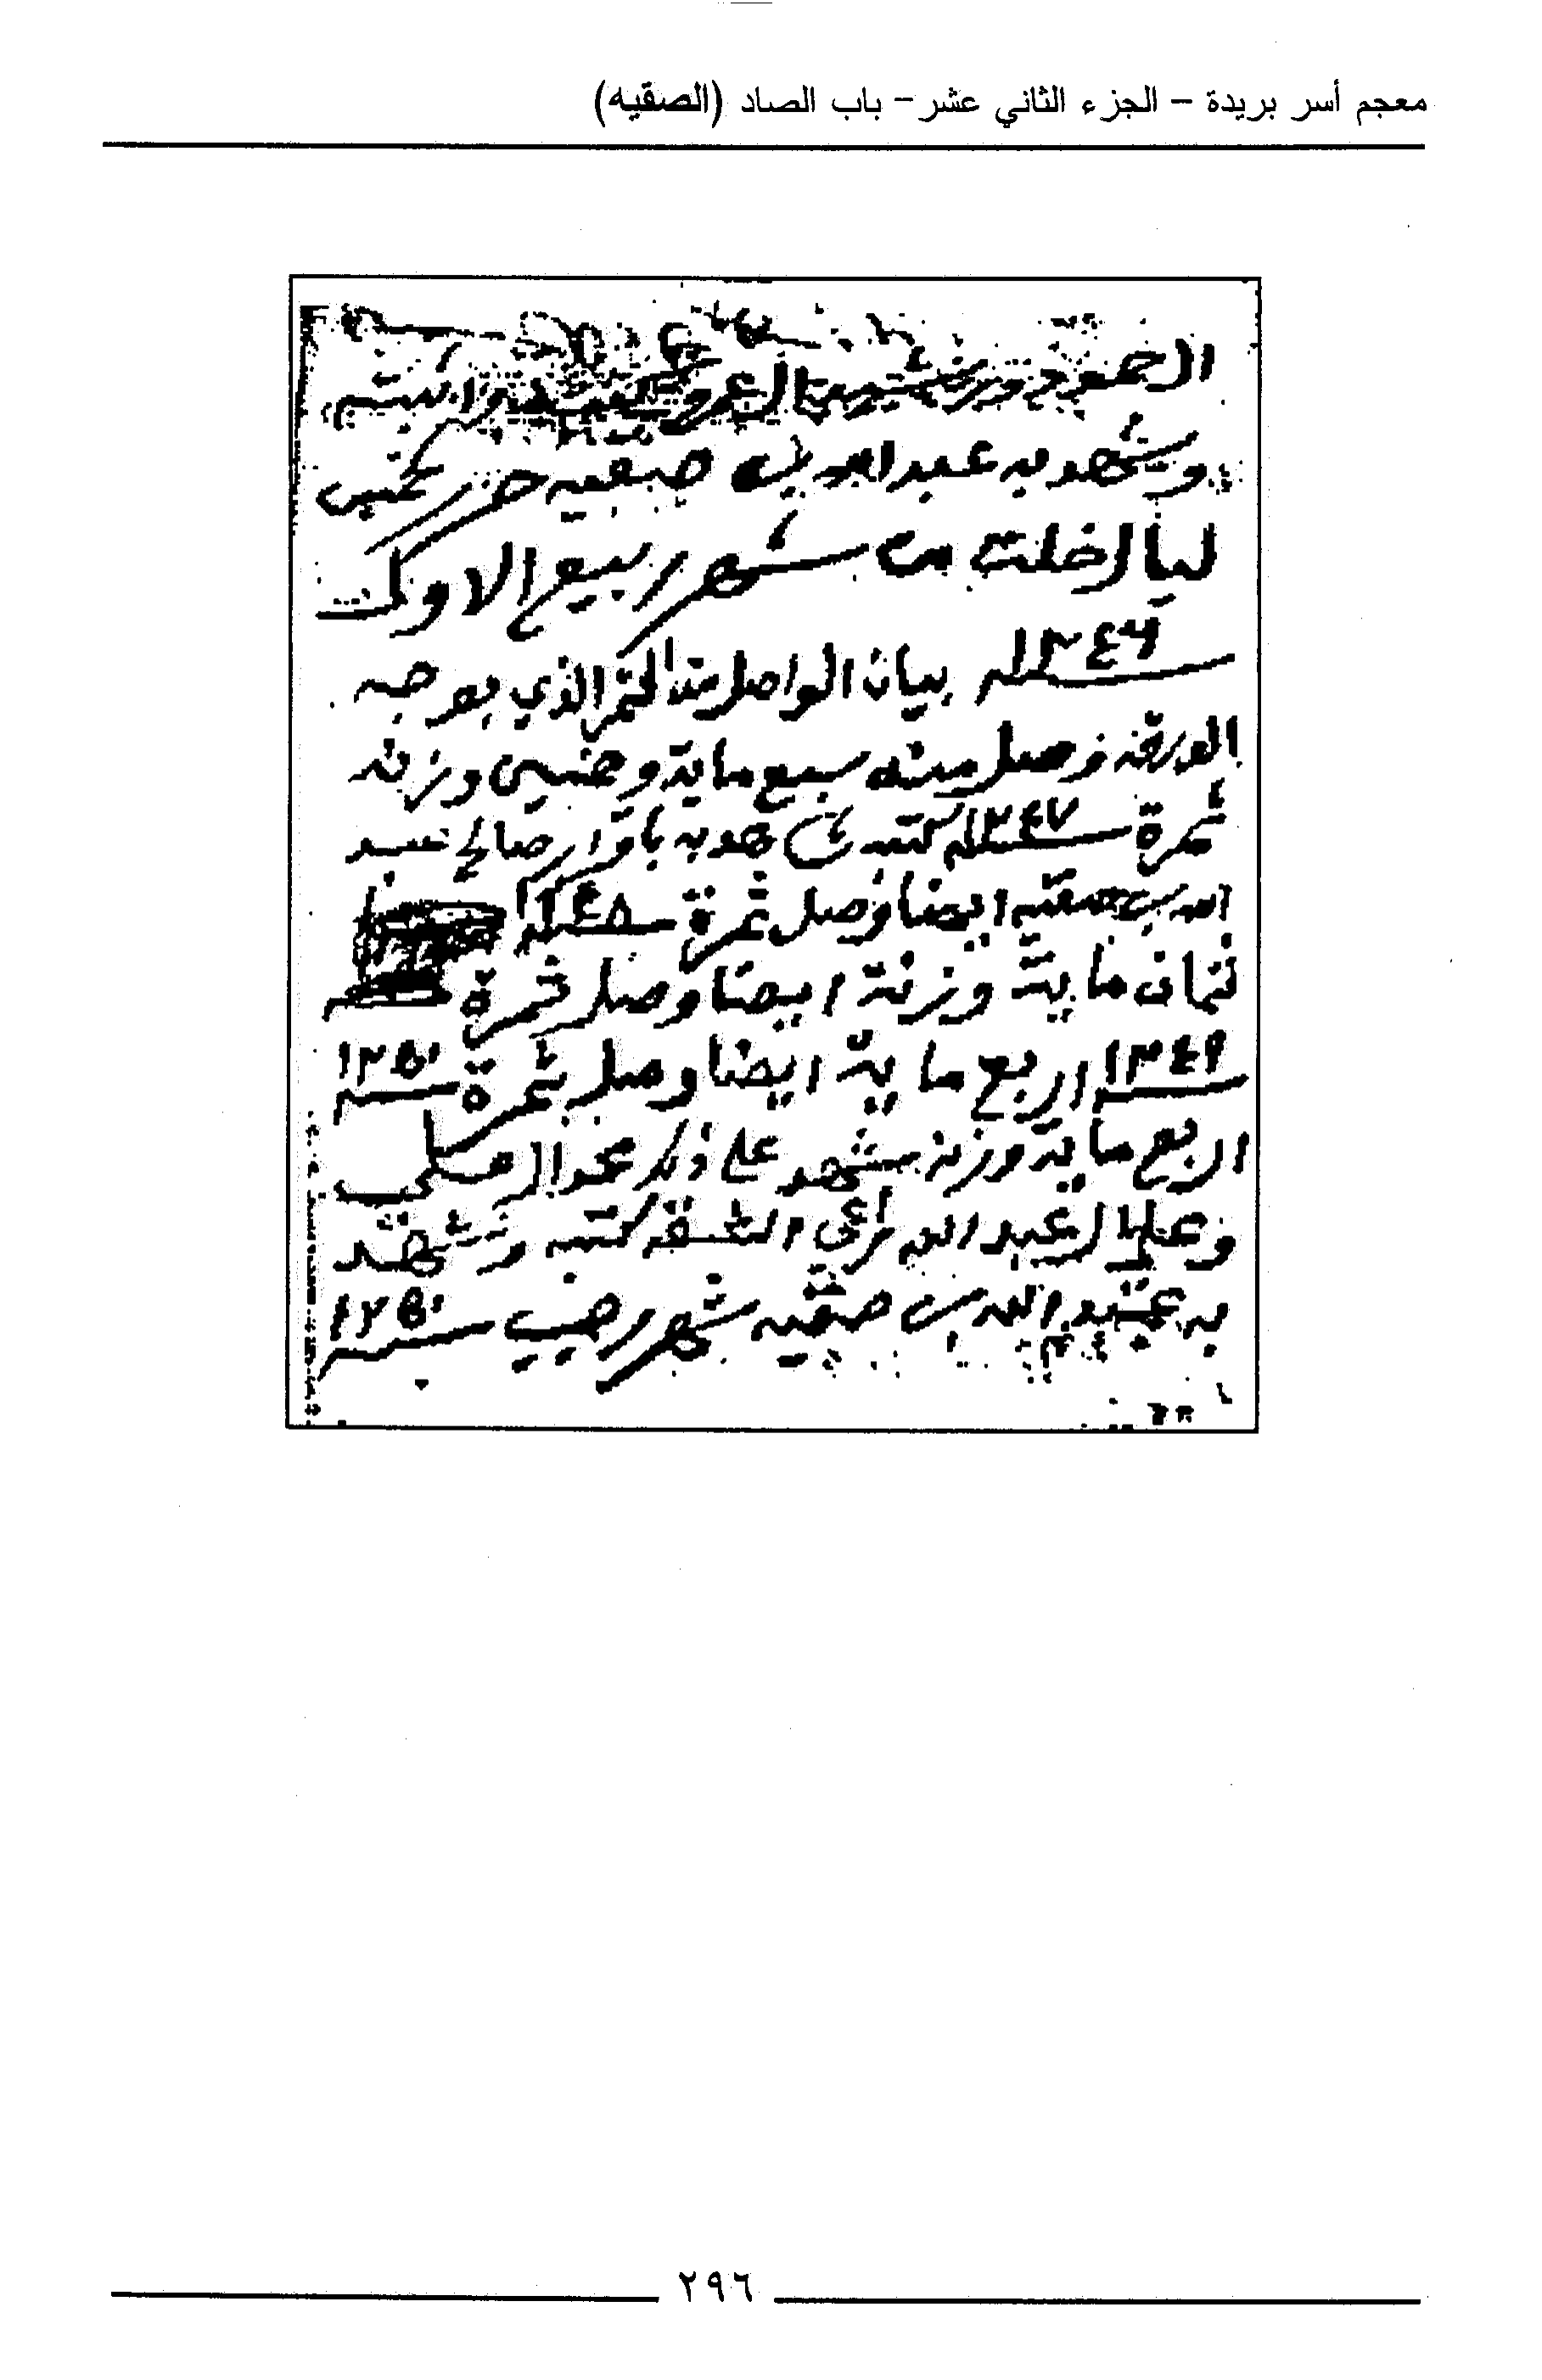 معجم أسر بريدة – الجزء الثاني عشر – باب الصاد (الصقيه)
وشهد به عبد الله بن صقيه حرر لخمس
ليال خلت من شهر ربيع الاول
سنة ١٣٤٦ بيان الواصل من التمر الذي بموجبه
الورقة وصل منه سبع ماية وخمسين وزنه
ثمرة سنة ١٣٤٧ كتبه شاهد به باقرار صالح عبد
الله بن صقيه ايضا وصل ثمرة سنة ١٣٤٨
ثمان ماية وزنة ايضا وصل ثمرة
سنة ١٣٤٩ اربع ماية ايضا وصل ثمرة سنة ١٣٥٠
اربع ماية وزنه شهد على ذلك محمد ال
وعلي ال عبد الله كتبه وشهد
به عبد الله بن صقيه شهر رجب سنة ١٣٥٠
٢٩٦